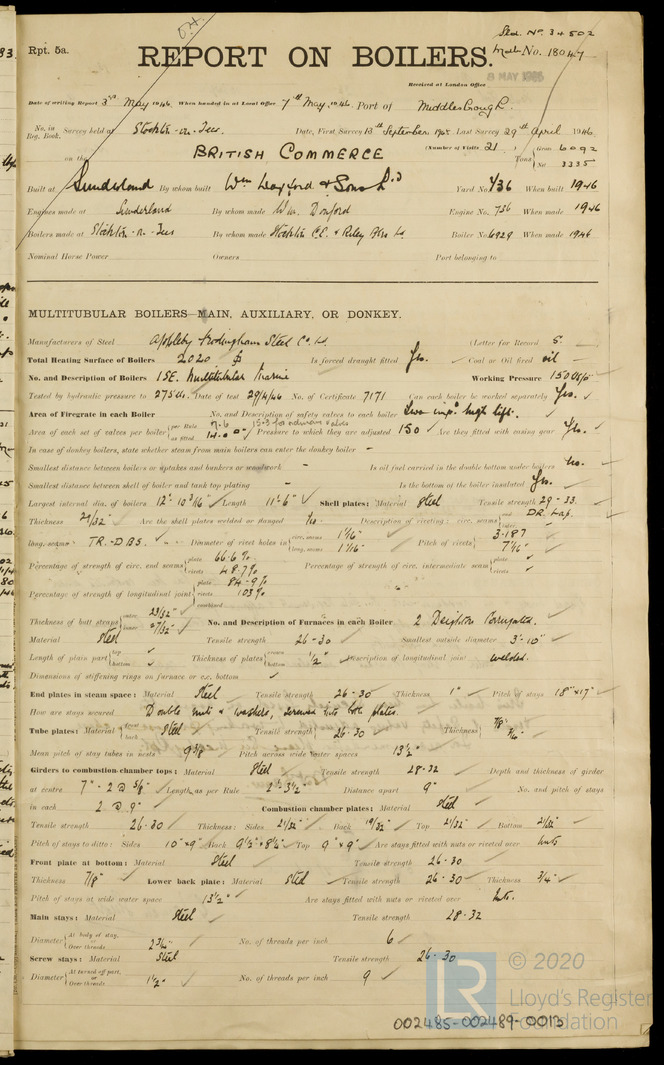 Sld. No. 34502
Rpt. 5a.
REPORT ON BOILERS.
No. 18047
Received at London Office
8 MAY 1946
Date of writing Report 3rd May 1946. When handed in at Local Office 7th May 1946. Port of Middlesbrough.
No. in Reg. Book. Survey held at Stockton-on-Tees. Date, First Survey 13th September 1945 Last Survey 29th April 1946.
on the BRITISH COMMERCE (Number of Visits 21) Tons Gross 6092
Net 3335
Built at Sunderland By whom built Wm Doxford & Sons Ld Yard No. 736 When built 1946
Engines made at Sunderland By whom made Wm. Doxford Engine No. 736 When made 1946
Boilers made at Stockton-on-Tees By whom made Stockton C.E. & Riley Blrs Ld. Boiler No. 6929 When made 1946
Nominal Horse Power Owners Port belonging to
MULTITUBULAR BOILERS—MAIN, AUXILIARY, OR DONKEY.
Manufacturers of Steel Appleby Frodingham Steel Co. Ld. (Letter for Record S.
Total Heating Surface of Boilers 2020 Is forced draught fitted Yes. Coal or Oil fired oil
No. and Description of Boilers 1 SE. Multitubular Marine Working Pressure 150 lbs/□"
Tested by hydraulic pressure to 275 lbs. Date of test 29/4/46 No. of Certificate 7171 Can each boiler be worked separately Yes.
Area of Firegrate in each Boiler No. and Description of safety valves to each boiler Two impd. high lift.
Area of each set of valves per boiler per Rule 7.6 as fitted 14.0 Pressure to which they are adjusted 150 Are they fitted with easing gear Yes.
In case of donkey boilers, state whether steam from main boilers can enter the donkey boiler -
Smallest distance between boilers or uptakes and bunkers or woodwork - Is oil fuel carried in the double bottom under boilers No.
Smallest distance between shell of boiler and tank top plating - Is the bottom of the boiler insulated Yes.
Largest internal dia. of boilers 12'. 10 3/16" Length 11'-6" Shell plates: Material Steel Tensile strength 29-33.
Thickness 21/32" Are the shell plates welded or flanged No. Description of riveting: circ. seams end DR. Lap.
long. seams TR.-D.B.S. Diameter of rivet holes in circ. seams 1 1/16" long. seams 1 1/16" Pitch of rivets 3.187 7 1/16"
Percentage of strength of circ. end seams plate 66.6% rivets 48.7% Percentage of strength of circ. intermediate seam plate rivets
Percentage of strength of longitudinal joint plate 84.9% rivets 103% combined
Thickness of butt straps outer 23/32" inner 27/32" No. and Description of Furnaces in each Boiler 2 Deighton Corrugated.
Material Steel Tensile strength 26-30 Smallest outside diameter 3'-10"
Length of plain part top bottom Thickness of plates crown bottom 1/2" Description of longitudinal joint welded.
Dimensions of stiffening rings on furnace or c.c. bottom
End plates in steam space: Material Steel Tensile strength 26-30 Thickness 1" Pitch of stays 18"x17"
How are stays secured Double nuts & washers, screwed into both plates.
Tube plates: Material front back Steel Tensile strength 26-30 Thickness 7/8"
Mean pitch of stay tubes in nests 9 3/8 Pitch across wide water spaces 13 1/2"
Girders to combustion chamber tops: Material Steel Tensile strength 28-32 Depth and thickness of girder
at centre 7" - 2 @ 5/8" Length as per Rule 2'-3 1/2" Distance apart 9" No. and pitch of stays
in each 2 @ 9" Combustion chamber plates: Material Steel
Tensile strength 26-30 Thickness: Sides 21/32" Back 19/32" Top 21/32" Bottom 21/32"
Pitch of stays to ditto: Sides 10"x9" Back 9 1/2"x8 1/4" Top 9"x9" Are stays fitted with nuts or riveted over Nuts
Front plate at bottom: Material Steel Tensile strength 26-30
Thickness 7/8" Lower back plate: Material Steel Tensile strength 26-30 Thickness 3/4"
Pitch of stays at wide water space 13 1/2" Are stays fitted with nuts or riveted over Nuts.
Main stays: Material Steel Tensile strength 28-32
Diameter At body of stay, or Over threads 2 3/4" No. of threads per inch 6
Screw stays: Material Steel Tensile strength 26-30
Diameter At turned off part, or Over threads 1 1/2" No. of threads per inch 9
LR © 2020
Lloyd's Register
Foundation
002485-002489-0013